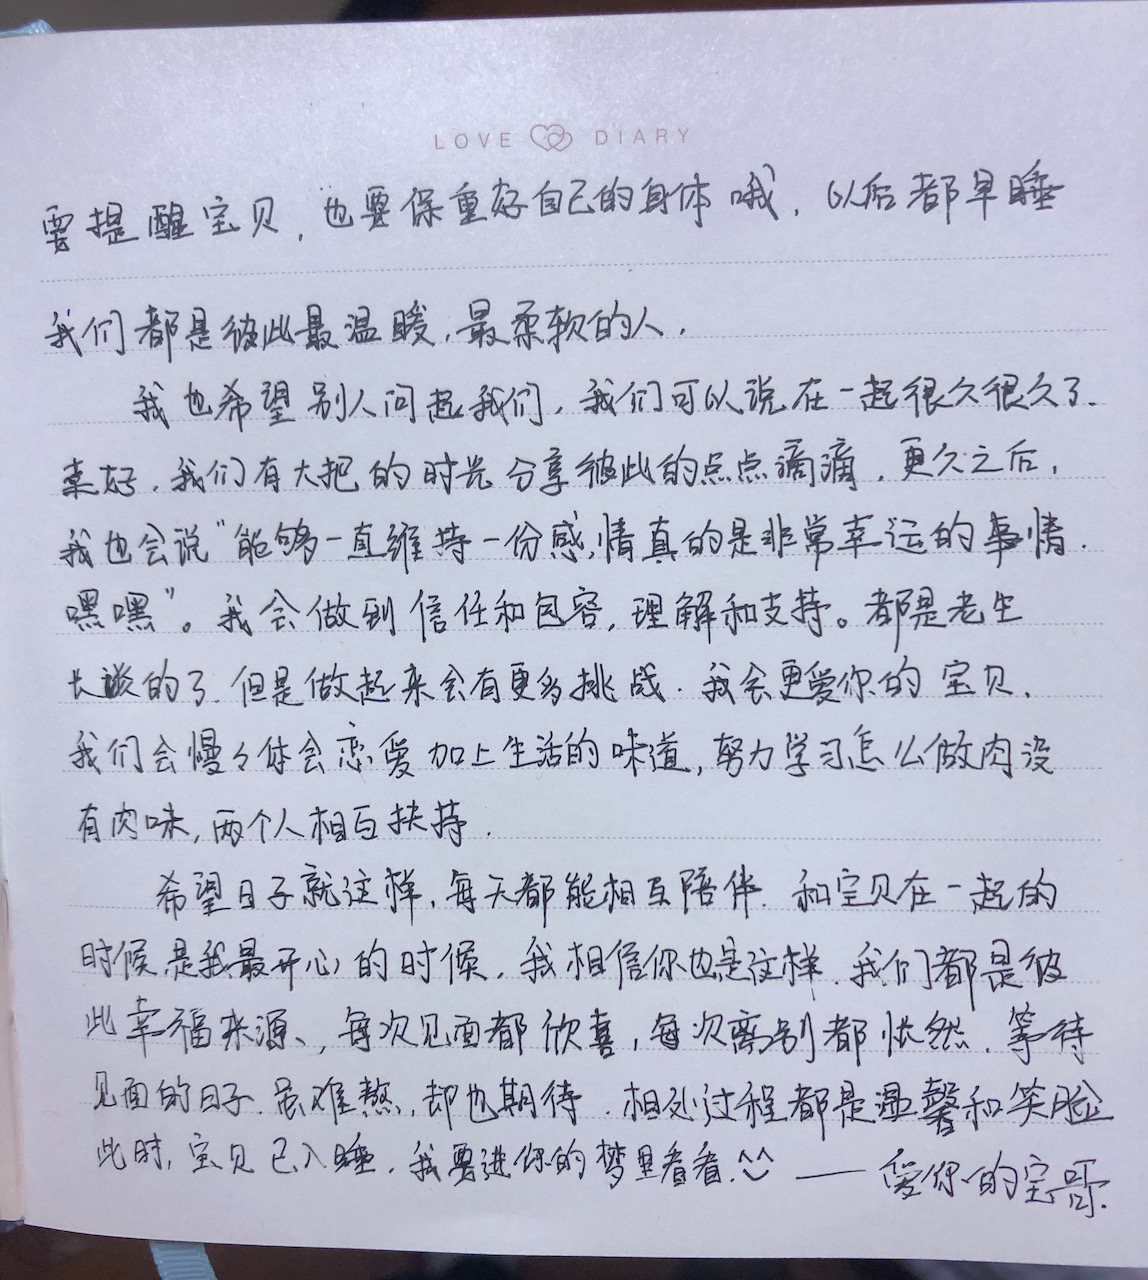 LOVE DIARY
要提醒宝贝，也要保重好自己的身体哦，以后都早睡
我们都是彼此最温暖，最柔软的人.
我也希望别人问起我们，我们可以说在一起很久很久了.
真好，我们有大把的时光分享彼此的点点滴滴，更久之后，
我也会说“能够一直维持一份感情真的是非常幸运的事情.
嘿嘿”。我会做到信任和包容，理解和支持。都是老生
长谈的了.但是做起来会有更多挑战.我会更爱你的宝贝.
我们会慢々体会恋爱加上生活的味道，努力学习怎么做肉没
有肉味，两个人相互扶持.
希望日子就这样，每天都能相互陪伴.和宝贝在一起的
时候是我最开心的时候，我相信你也是这样.我们都是彼
此幸福来源、，每次见面都欣喜，每次离别都怅然.等待
见面的日子.虽难熬，却也期待.相处过程都是温馨和笑脸
此时，宝贝已入睡.我要进你的梦里看看.^^ ——爱你的宝哥.